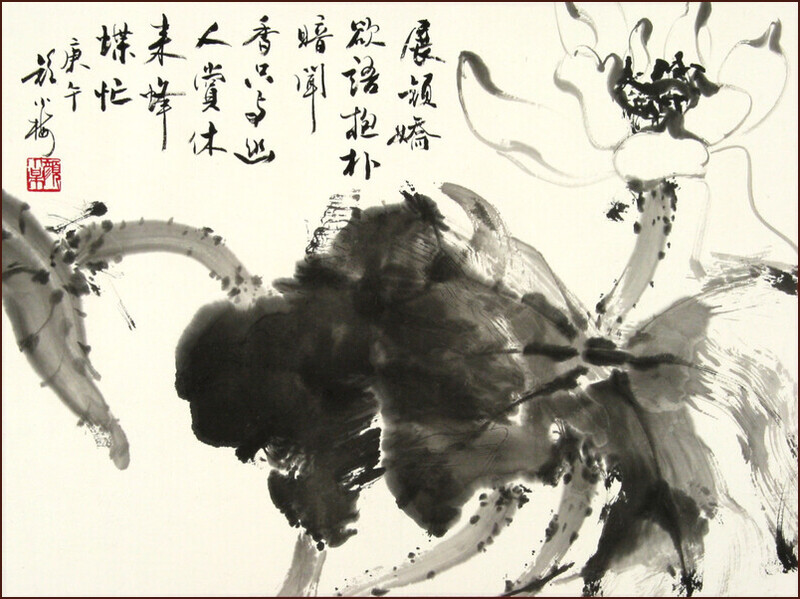 展顏嬌
欲語抱朴
暗聞
香只与幽
人賞休
来蜂
蝶忙
庚午
顏小梅